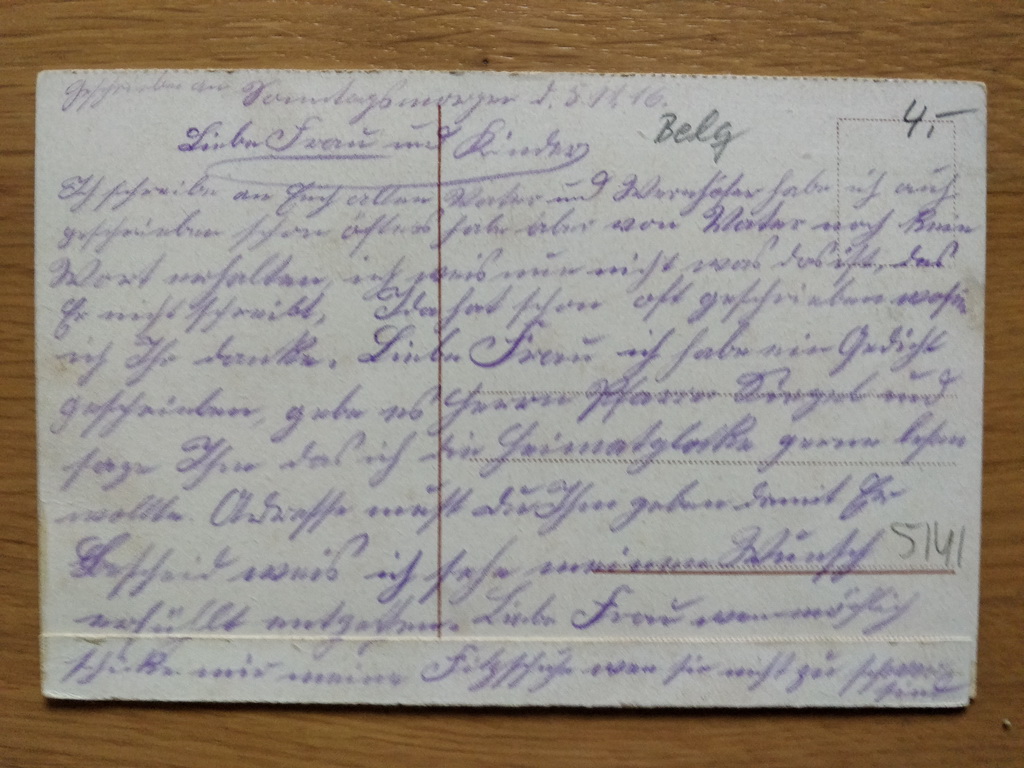 Geschrieben am Sonntagsmorgen d. 5.11.16.
4,-
Belg
Liebe Frau und Kinder
Ich schreibe an Euch allen Vater und Wernhöfer habe ich auch
geschrieben schon öfters habe aber von Vater noch kein
Wort erhalten, ich weis nun nicht was das ist, das
Er nicht schreibt, Ida hat schon oft geschrieben wofür
ich Ihr danke. Liebe Frau ich habe ein Gedicht
geschrieben, gebe es Herrn Pfarrer und
sage Ihm das ich die Heimatglocke gerne lesen
wollte. Adresse must du Ihm geben damit Er
Bescheid weis ich sehe meinem Wunsch
5141
erfüllt entgegen. Liebe Frau wen möglich
schicke mir meine Filzschuhe wen sie nicht zu schwer
sind